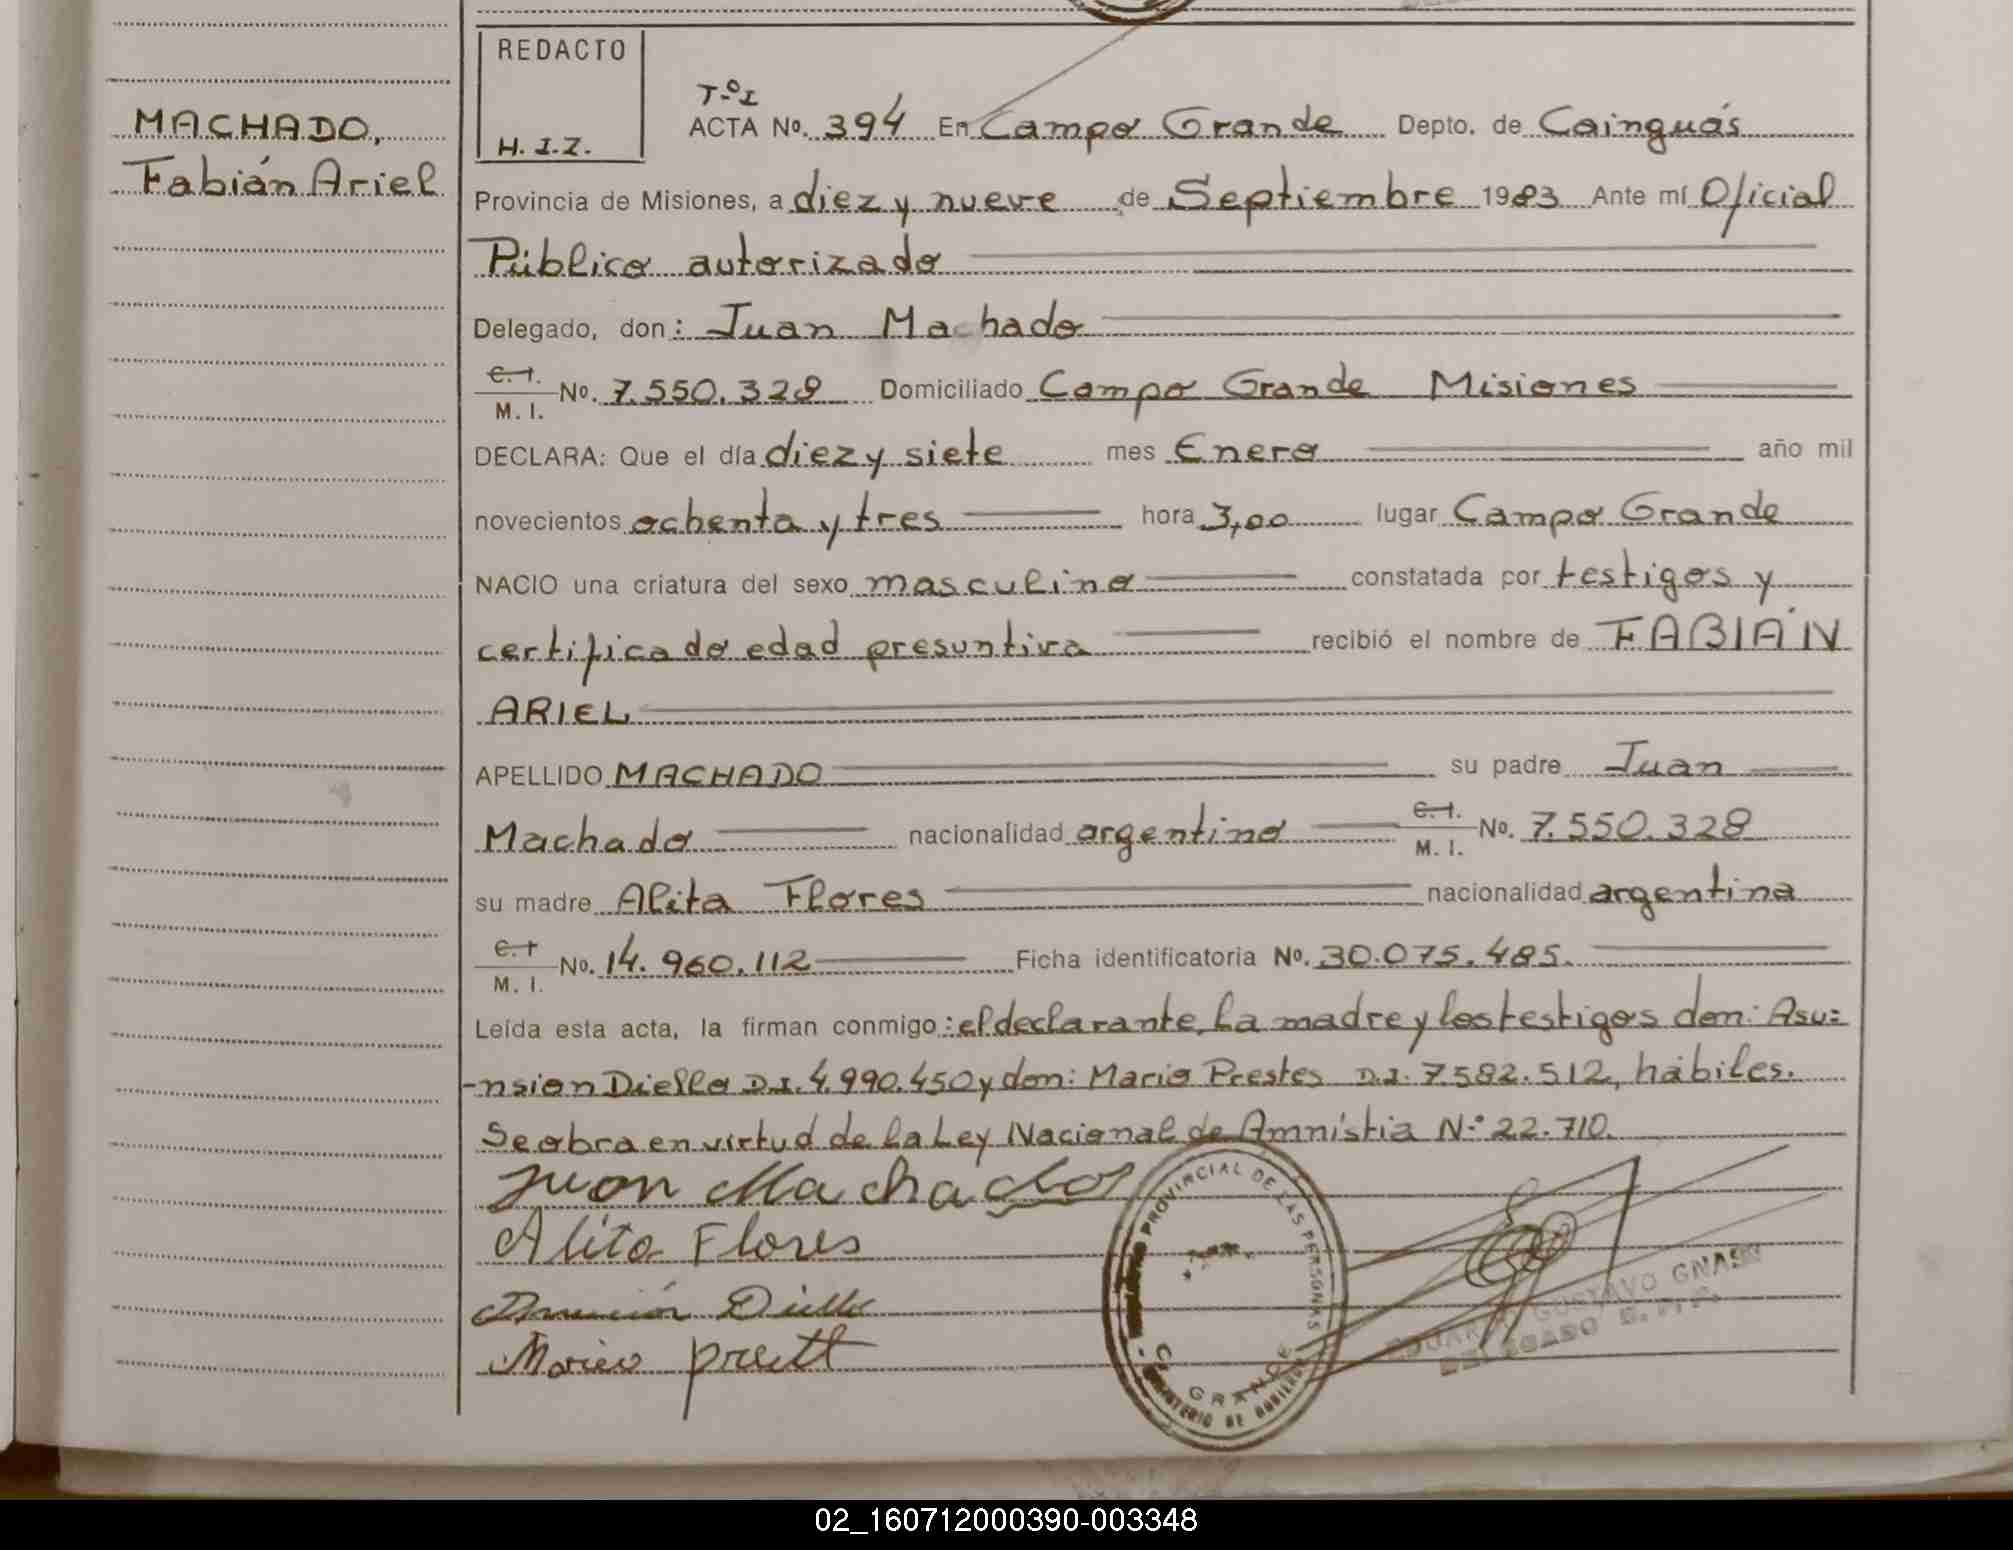 REDACTO
H. I. Z.
MACHADO,
Fabián Ariel
Tº I
ACTA No. 394 En Campo Grande Depto. de Cainguás
Provincia de Misiones, a diez y nueve de Septiembre 1983 Ante mí Oficial
Público autorizado
Delegado, don: Juan Machado
C. I. M. I. No. 7.550.328 Domiciliado Campo Grande Misiones
DECLARA: Que el día diez y siete mes Enero año mil
novecientos ochenta y tres hora 3,00 lugar Campo Grande
NACIO una criatura del sexo masculino constatada por testigos y
certificado edad presuntiva recibió el nombre de FABIÁN
ARIEL
APELLIDO MACHADO su padre Juan
Machado nacionalidad argentino C. I. M. I. No. 7.550.328
su madre Alita Flores nacionalidad argentina
C. I. M. I. No. 14.960.112 Ficha identificatoria No. 30.075.485.
Leída esta acta, la firman conmigo: el declarante, la madre y los testigos don: Asu=
-nsion Diello D.I. 4.990.450 y don: Mario Prestes D.I. 7582.512, hábiles.
Se obra en virtud de la Ley Nacional de Amnistia N.º 22.710.
Juan Machado
Alita Flores
Asunción Diello
Mario
PROVINCIAL DE LAS PERSONAS
GRANDE
MINISTERIO DE GOBIERNO
GUSTAVO
DELEGADO
02_160712000390-003348